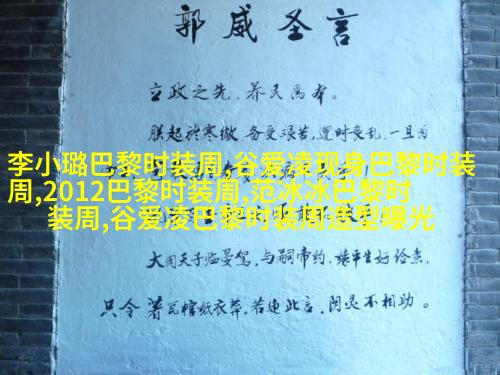 郭威圣言
立政之先,养民为本。
朕起於寒微,备受艰苦,遭时丧乱,一旦为
李小璐巴黎时装周,谷爱凌现身巴黎时装
周,2012巴黎时装周,范冰冰巴黎时
装周,谷爱凌巴黎时装周造型曝光
大周天子临晏驾,与嗣帝约,缘平生好俭素,
只令著瓦棺纸衣葬。若违此言,阴灵不相助。